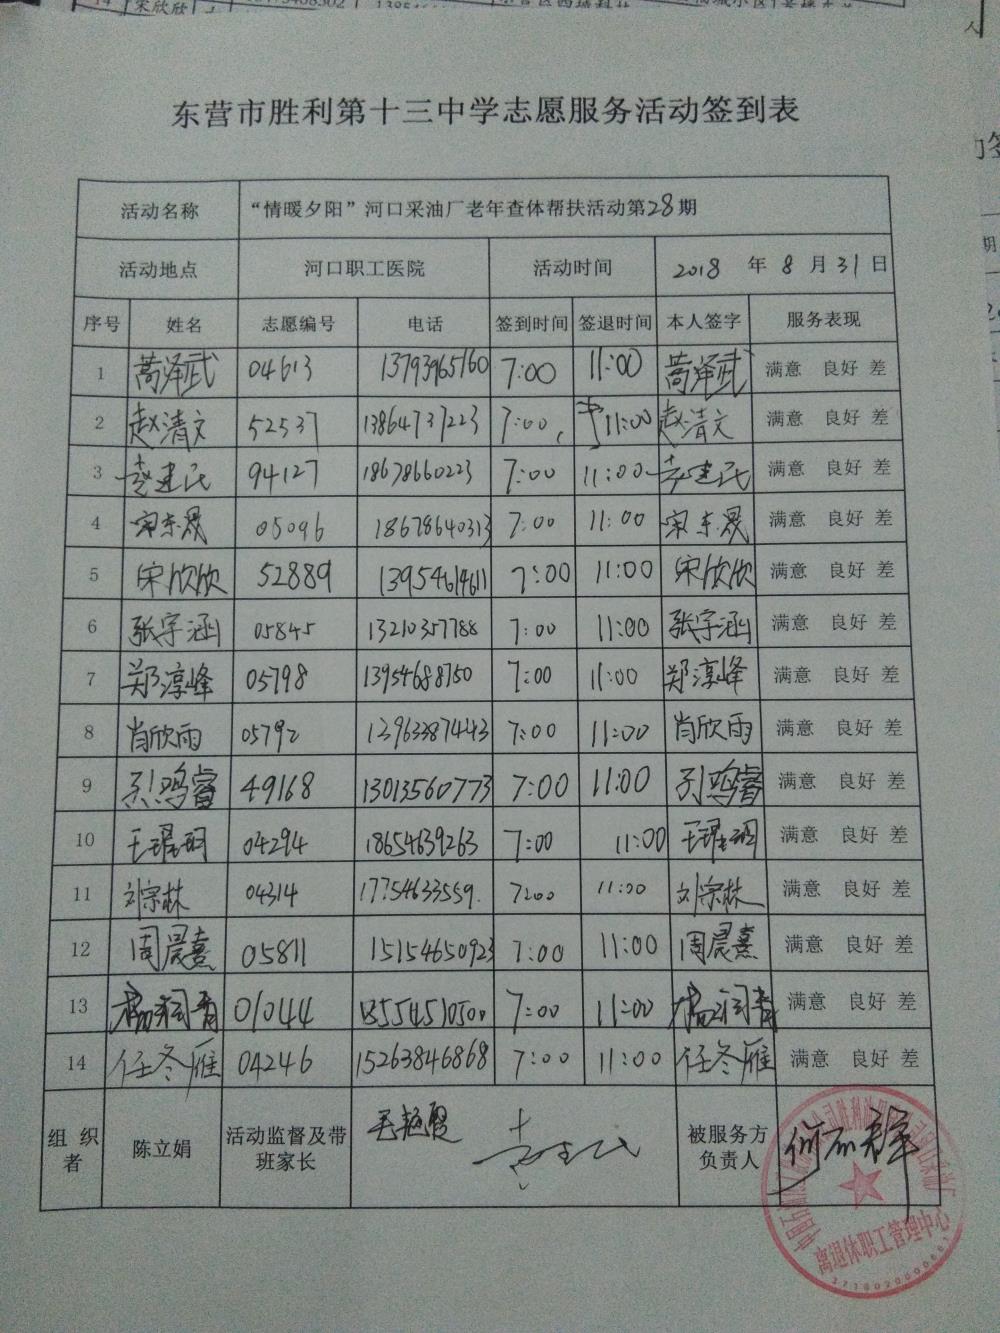 东营市胜利第十三中学志愿服务活动签到表
活动名称 “情暖夕阳”河口采油厂老年查体帮扶活动第28期
活动地点 河口职工医院 活动时间 2018 年 8 月 31 日
序号 姓名 志愿编号 电话 签到时间 签退时间 本人签字 服务表现
1 蔄泽武 04613 13793965160 7:00 11:00 蔄泽武 满意 良好 差
2 赵清文 52537 13864737223 7:00 11:00 赵清文 满意 良好 差
3 94127 18678660223 7:00 11:00 满意 良好 差
4 宋东晟 05096 18678640313 7:00 11:00 宋东晟 满意 良好 差
5 宋欣欣 52889 13954614611 7:00 11:00 宋欣欣 满意 良好 差
6 张宇涵 05845 13210357788 7:00 11:00 张宇涵 满意 良好 差
7 郑淳峰 05798 13954688750 7:00 11:00 郑淳峰 满意 良好 差
8 肖欣雨 05792 13963387443 7:00 11:00 肖欣雨 满意 良好 差
9 孙鸣睿 49168 13013560773 7:00 11:00 孙鸣睿 满意 良好 差
10 04294 18654639263 7:00 11:00 满意 良好 差
11 刘宗林 04314 17754633559 7:00 11:00 刘宗林 满意 良好 差
12 周晨熹 05811 15154650923 7:00 11:00 周晨熹 满意 良好 差
13 杨润青 01044 18554510500 7:00 11:00 杨润青 满意 良好 差
14 任冬雁 04246 15263846868 7:00 11:00 任冬雁 满意 良好 差
组织者 陈立娟 活动监督及带 毛艳霞 被服务方
班家长 负责人
离退休职工管理中心